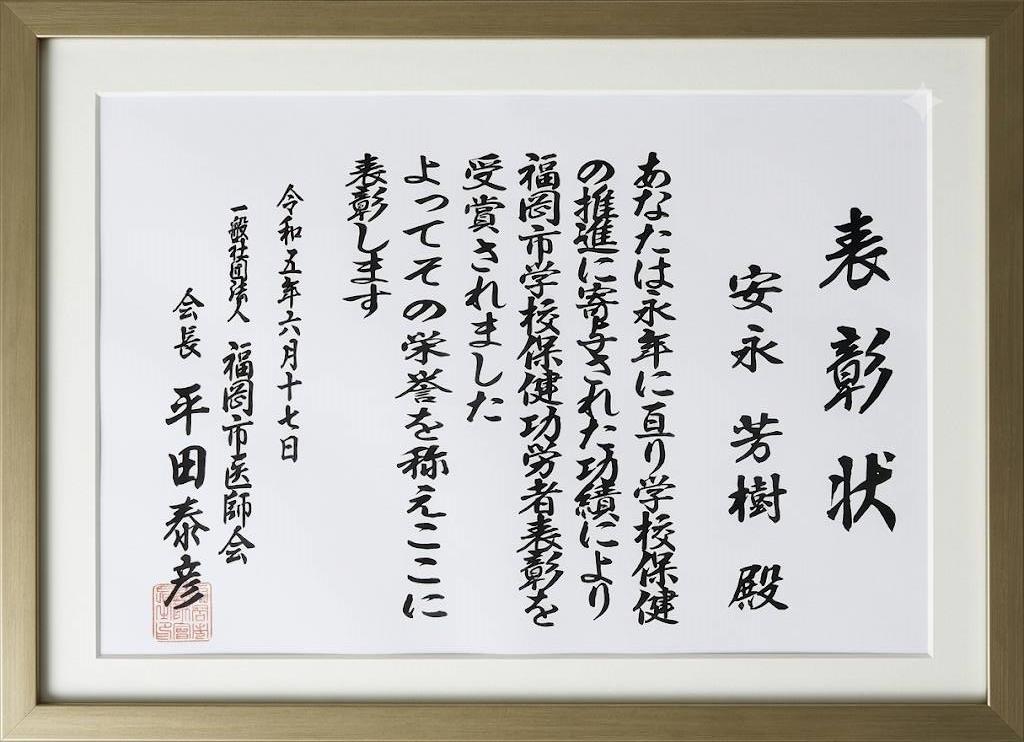 表彰状
安永 芳樹 殿
あなたは永年に亘り学校保健
の推進に寄与された功績により
福岡市学校保健功労者表彰を
受賞されました
よってその栄誉を称えここに
表彰します
令和五年六月十七日
一般社団法人 福岡市医師会
会長 平田泰彦